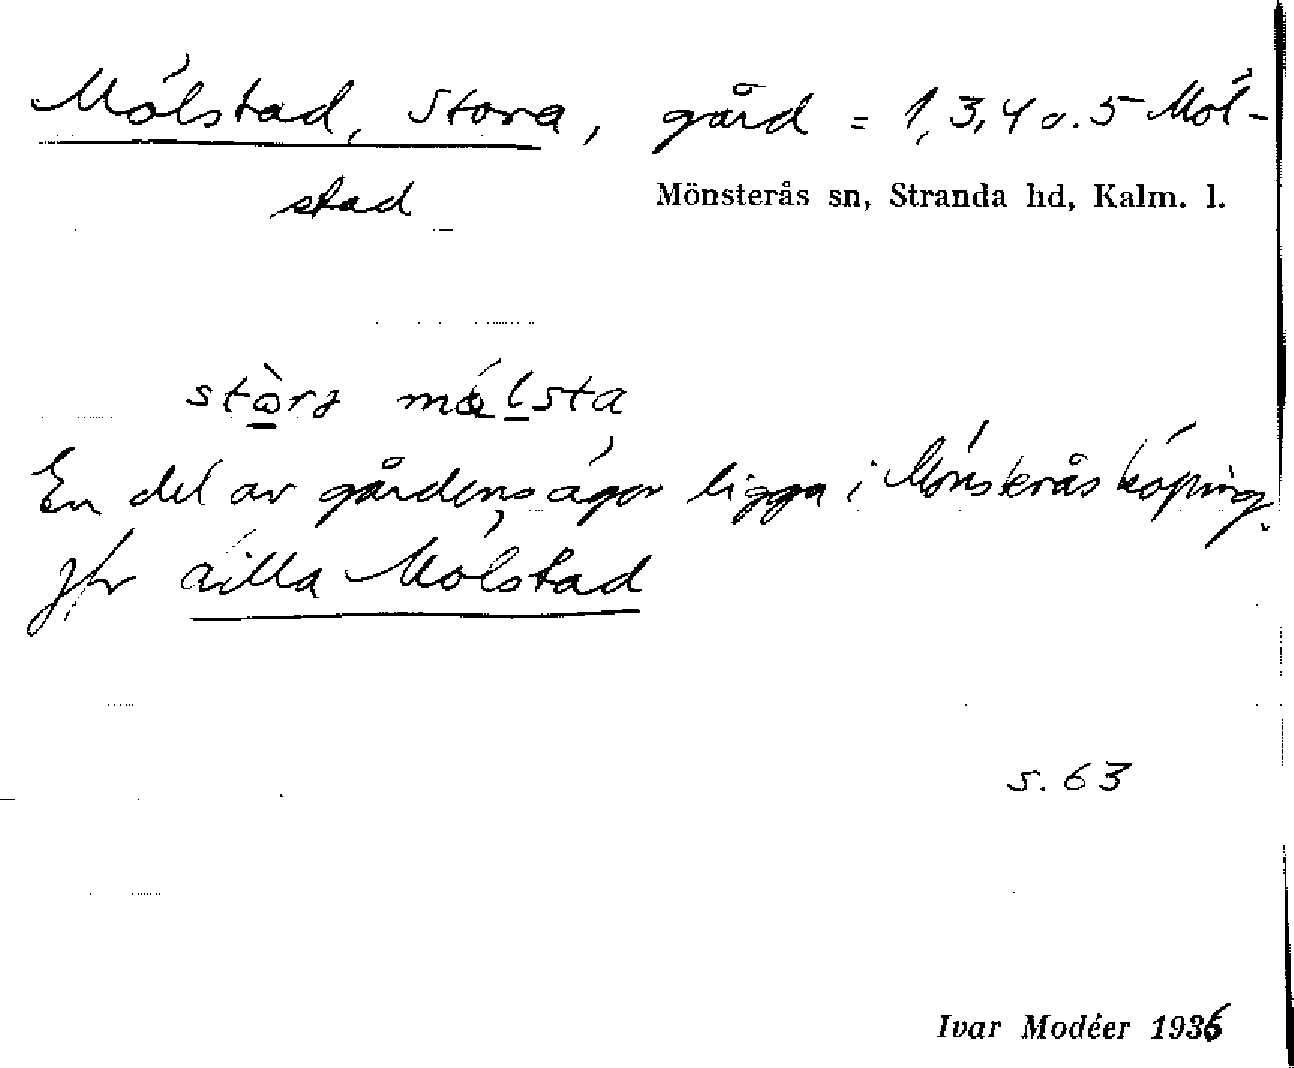 Mölstad, Stora, gård = 1, 3, 4 o. 5 Möl-
stad
Mönsterås sn, Stranda hd, Kalm. l.
stòra mǿlsta
En del av gårdens ägor ligga i Mönsterås köping.
Jfr Lilla Mölstad
s. 63
Ivar Modéer 1936